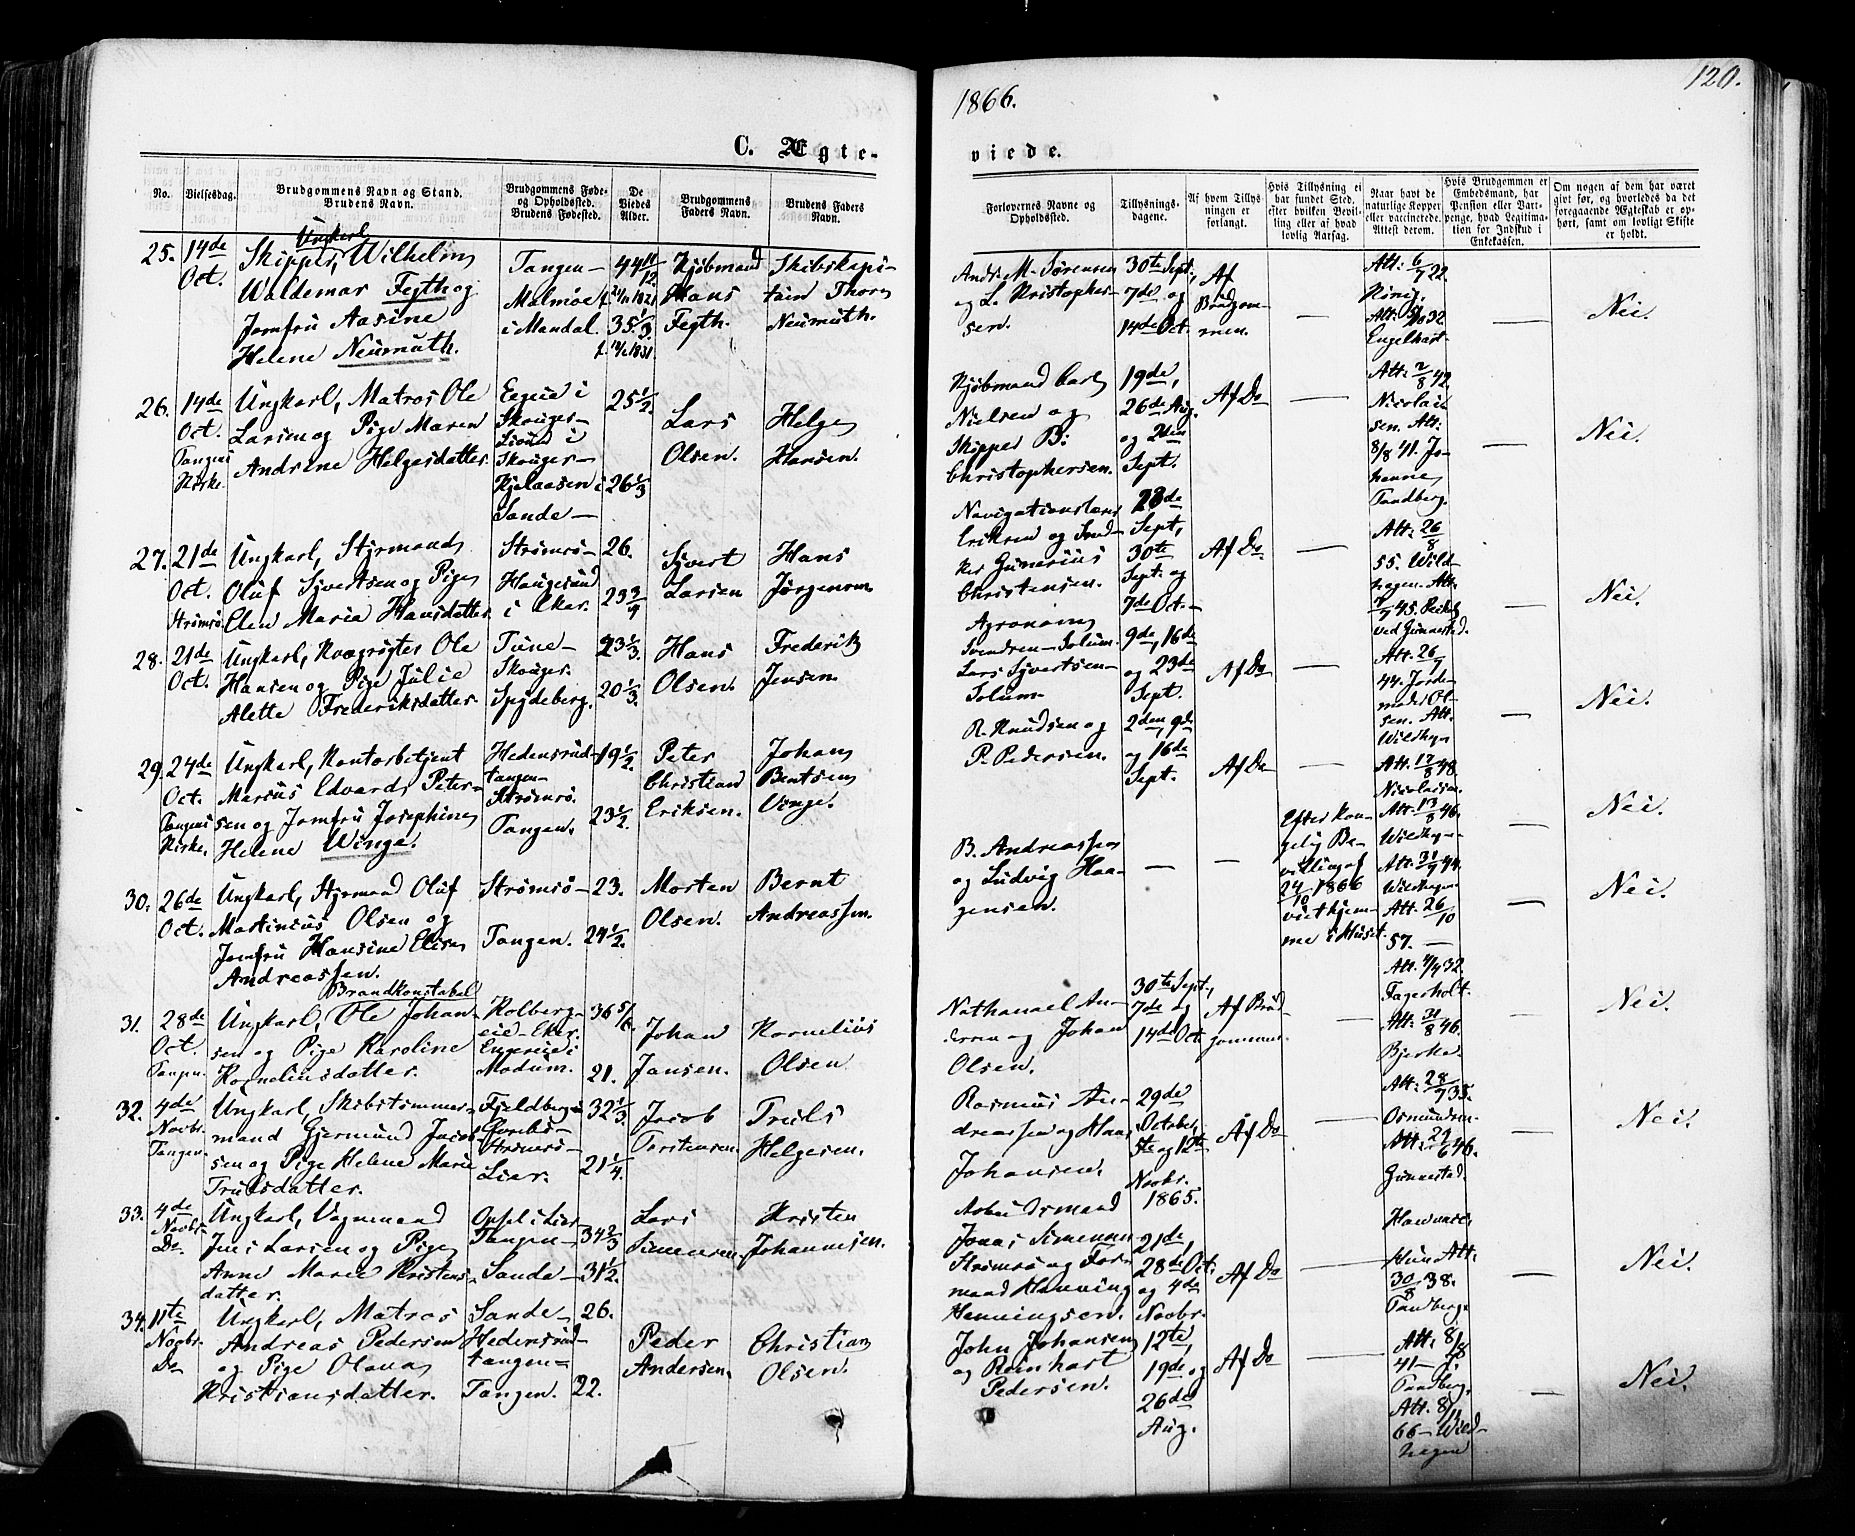 1866.
120.
C. Ægte-
viede.
No.
Vielsesdag.
Brudgommens Navn og Stand.
Brudens Navn.
Brudgommens Føde-
og Opholdsted.
Brudens Fødested.
De
Viedes
Alder.
Brudgommens
Faders Navn.
Brudens Faders
Navn.
Forlovernes Navne og
Opholdsted.
Tillysnings-
dagene.
Af hvem Tillys-
ningen er
forlangt.
Hvis Tillysning ei
har fundet Sted,
efter hvilken Bevil-
ling eller af hvad
lovlig Aarsag.
Naar havt de
naturlige Kopper
eller vaccinerede.
Attest derom.
Hvis Brudgommen er
Embedsmand, har
Pension eller Vart-
penge, hvad Legitima-
tion for Indskud i
Enkekassen.
Om nogen af dem har været
gift før, og hvorledes da det
foregaaende Ægteskab er op-
hørt, samt om lovligt Skifte
er holdt.
25.
14de
Oct.
Ungkarl
Skipper, Wilhelm
Waldemar Fegth og
Jomfru Aasine
Helene Neumuth.
Tangen-
Malmøe
i Mandal.
44 11/12
35 1/3
Kjøbmand
Hans
Fegth.
Skibskapi-
tain Thore
Neumuth.
Andr. M. Sørensen
og L. Kristopher-
sen.
30te Sept,
7de og
14de Oct.
Af
Brudgom-
men.
—
Att: 6/7 22.
König,
Att: 32.
Engelhart
—
Nei.
26.
14de
Oct.
Tangens
Kirke
Ungkarl, Matros Ole
Larsen og Pige Maren
Andrine Helgesdatter.
i
Skouger-
i
Skouger-
Kjelaasen i
Sande-
25 1/2.
26 1/3
Lars
Olsen.
Helge
Hansen.
Kjøbmand Carl
Nielsen og
Skipper B:
Christophersen.
19de,
26de Aug.
og 2den
Sept.
Af Do
—
Att: 2/8 42.
Nicolai-
sen. Att:
8/8 41. Jo-
hanne
Tandberg.
—
Nei.
27.
21de
Oct.
Strømsø.
Ungkarl, Styrmand
Oluf Syvertsen og Pige
Elen Maria Hansdatter.
Strømsø-
Haugesund
i Eker.
26.
23 3/4
Syvert
Larsen
Hans
Jørgensen
Navigationslærer
Eriksen og
Gunerius
Christensen.
23de
Sept,
30te
Sept. og
7de Oct.-
Af Do
—
Att: 26/8
55. Wild-
hagen. Att.
45.
ved Gunnestad.
—
Nei.
28.
21de
Oct.
Ungkarl, Kvægrøgter Ole
Hansen og Pige Julie
Alette Frederiksdatter.
Tune-
Skouger.
Spydeberg.
23 1/3.
20 1/3.
Hans
Olsen.
Frederik
Jensen.
Agronom
Svendsen-Solum.
Lars Syvertsen-
Solum.
9de, 16de
og 23de
Sept.
Af Do
—
Att: 26/7
44. Jorde-
moder Ol-
sen. Att.
Wildhgn
—
Nei.
29.
24de
Oct.
Tangens
Kirke.
Ungkarl, Kontorbetjent
Marius Edvard Peter-
sen og Jomfru Josephine
Helene Winge.
Hedensrud-
tangen-
Strømsø.
Tangen.
19 1/2.
23 1/2.
Peter
Christian
Eriksen.
Johan
Bentsen
Vinge.
R. Knudsen og
P. Pedersen.
2den, 9de
og 16de
Sept.
Af Do
—
Att: 17/8 48.
Nicolaisen.
Att: 13/8 46.
Wildhgn-
—
Nei.
30.
26de
Oct.
Ungkarl, Styrmand Oluf
Martinius Olsen og
Jomfru Hansine Elise
Andreassen.
Strømsø-
Tangen.
23.
24 1/2.
Morten
Olsen.
Bernt
Andreassen.
B. Andreassen
og Ludvig Haa-
gensen.
—
—
Efter kon-
gelig Be-
villing af
24/10 1866
viet hjem-
me i Huset.
Att: 31/7 44.
Wildhagen
Att: 26/10
57. —
—
Nei.
31.
28de
Oct.
Tangen.
Brandkonstabel
Ungkarl, Ole Johan-
sen og Pige Karoline
Kornelinsdatter.
Holberg-
eie-Eker.
i
Modum.
36 5/6.
21.
Johan
Jansen.
Kornelius
Olsen
Nathanael An-
dersen og Johan
Olsen.
30te Sept.,
7de og
14de Oct.
Af Brud-
gommen.
—
Att. 4/9 32.
Fagerholt.
Att: 31/8 46.
Bjerke.
—
Nei.
32.
4de
Novbr.
Tangen.
Ungkarl, Skibstømmer-
mand Gjermund Jacob-
sen og Pige Helene Marie
Trulsdatter.
Fjeldberg
Strømsø-
Lier.
32 1/3
21 1/4
Jacob
Torstensen
Truls
Helgesen.
Rasmus An-
dreassen og Haa
Johansen.
29de
October,
5te og 12te
Novbr.
1865.
Af Do
—
Att: 28/7 35.
Osmundsen
Att: 29/6 46.
Gunnestad.
—
Nei.
33.
4de
Novbr.
Do
Ungkarl, Vognmand
Jens Larsen og Pige
Anne Marie Kristens-
datter.
i Lier
Tangen-
Sande-
34 2/3
31 1/2.
Lars
Simensen
Kristen
Johannesen.
Jonas Simensen
Strømsø og For-
mand Henning
Henningsen.
21de,
28de Oct.
og 4de
Novbr.
Af Do
—
Hun Att.
30/8 38.
Tandberg.
—
Nei.
34.
11te
Novbr.
Do
Ungkarl, Matros
Andreas Pedersen
og Pige Olava
Kristiansdatter.
Sande-
Hedensrud-
tangen-
Tangen.
26.
22.
Peder
Andersen.
Christian
Olsen.
John Johansen
og Reinhart
Pedersen.
12te,
19de og
26de
Aug.
Af Do
—
Att. 8/8
41- J.
Tandberg.
Att. 8/11
66- Wild-
hagen
—
Nei.